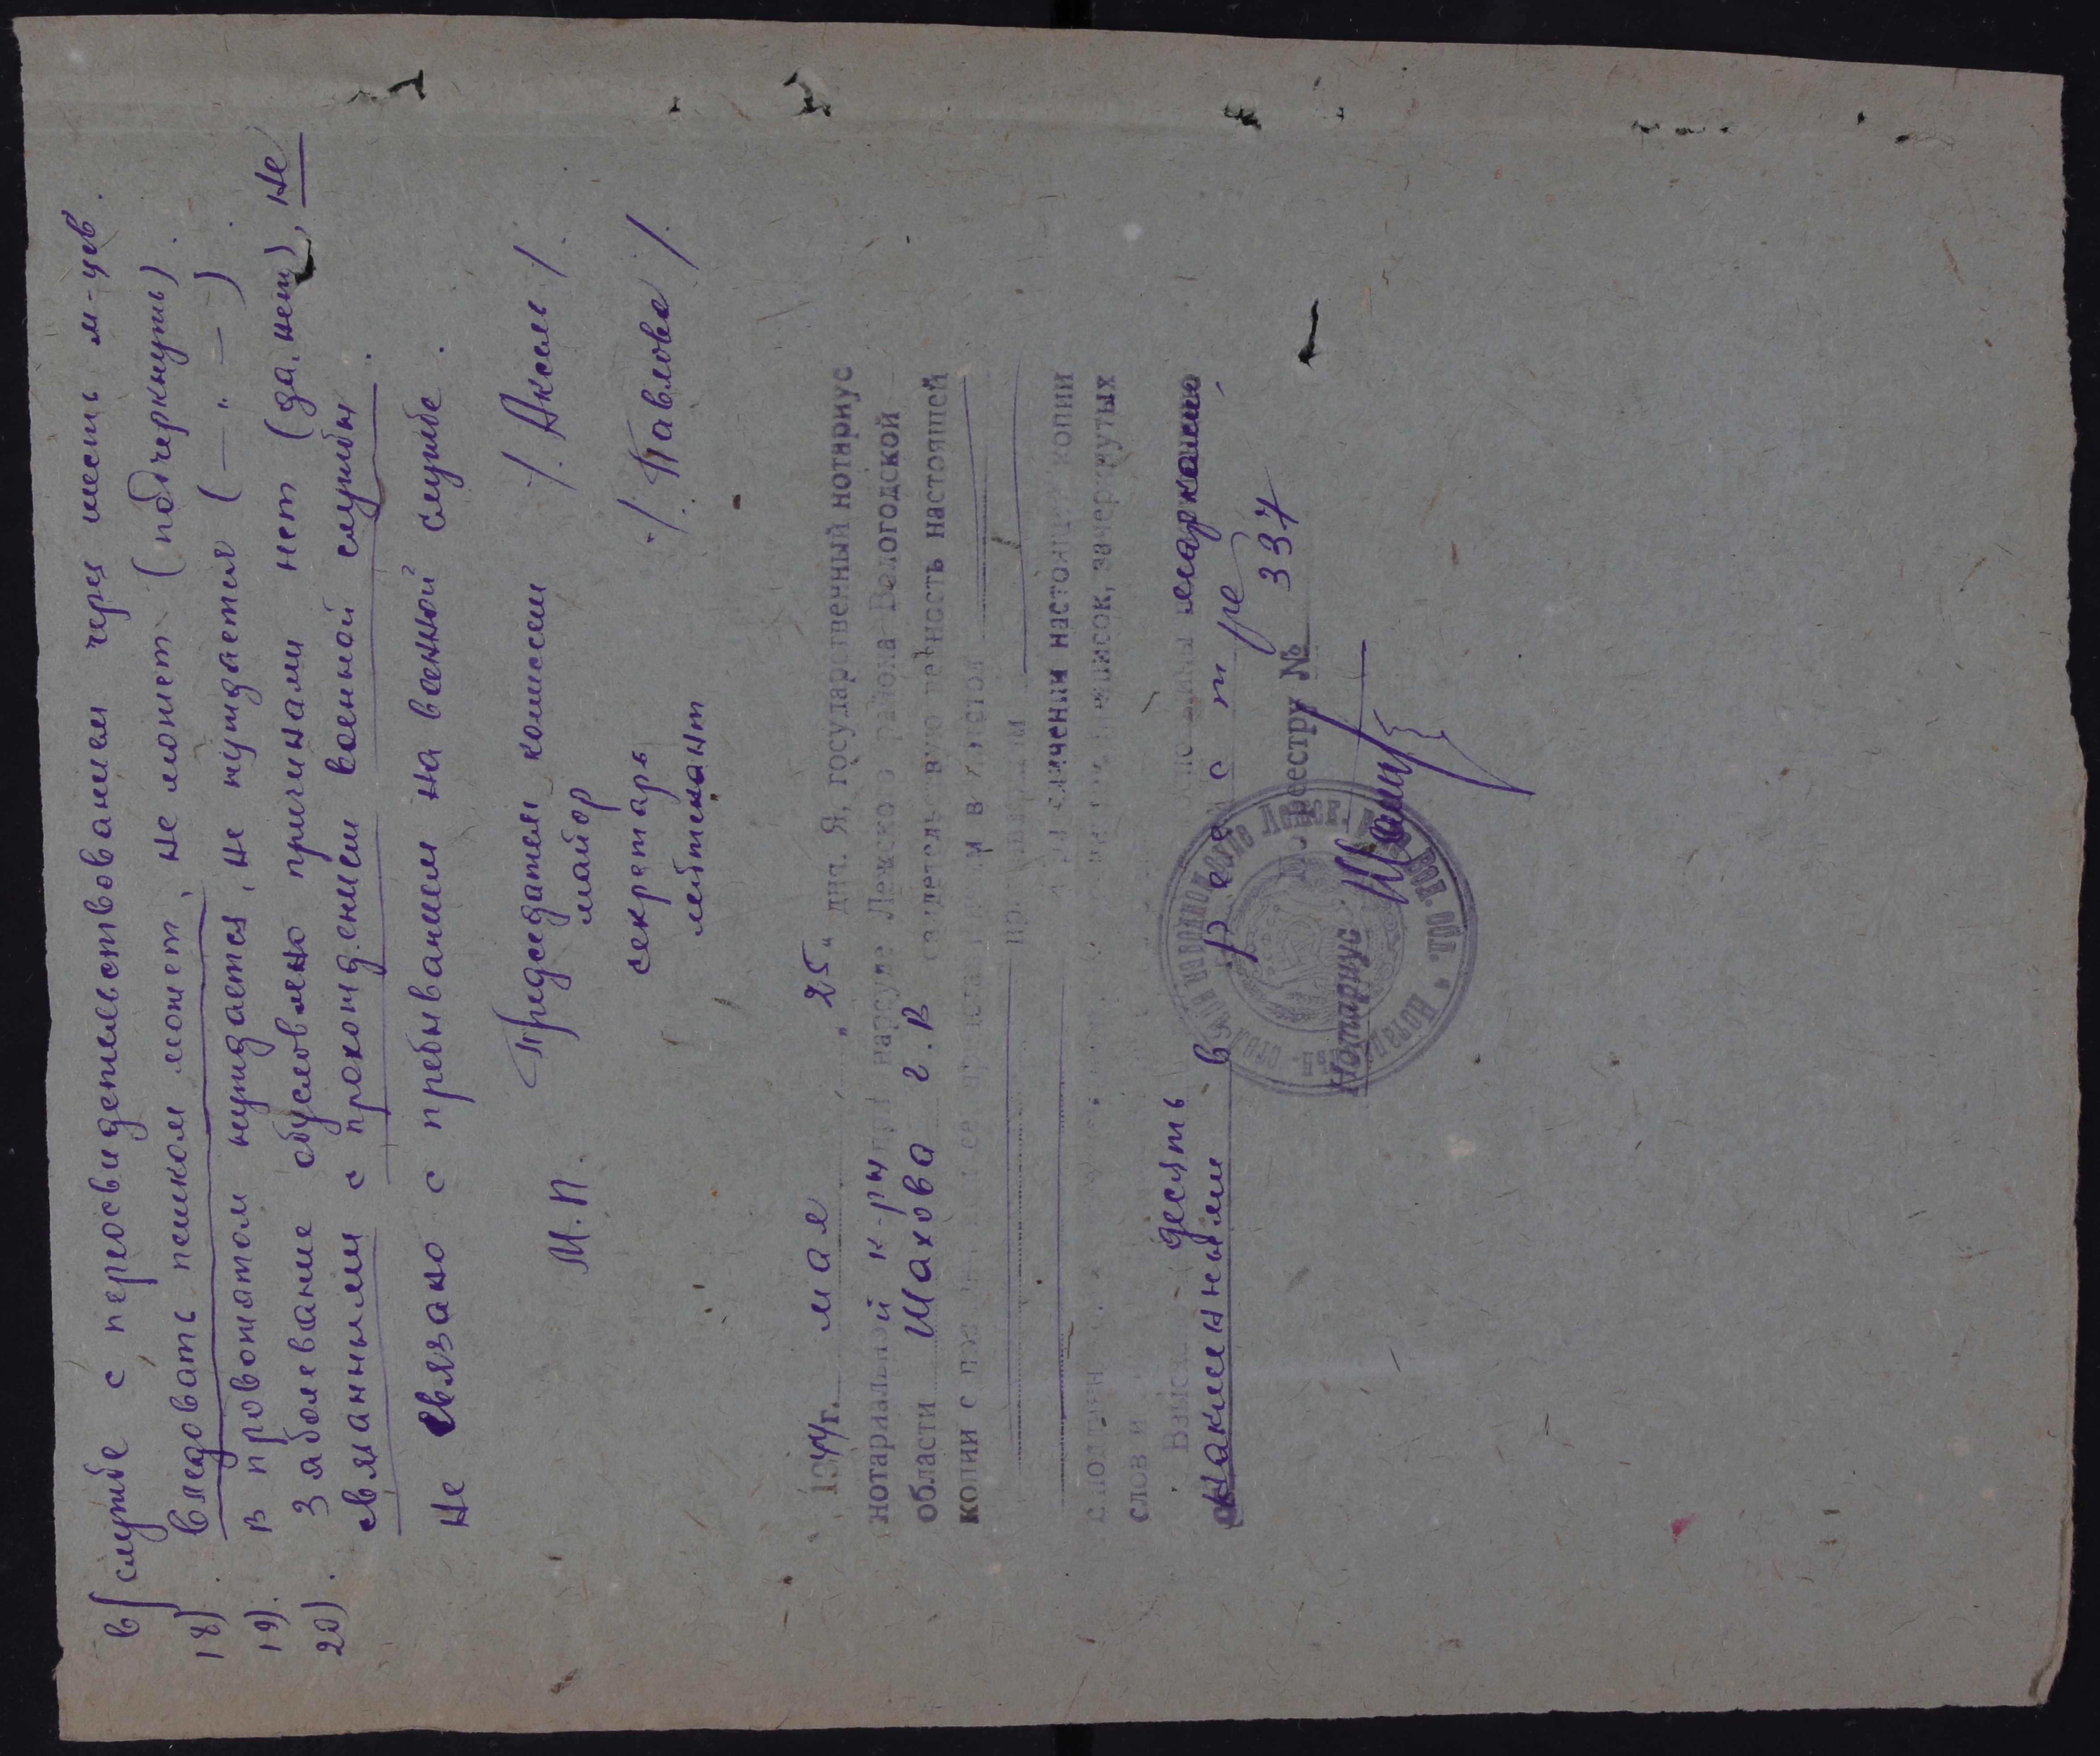 в/ службе с переосвидетельствованием через шесть м-цев.
18). Следовать пешком может, не может (подчеркнуть).
19). В провожатом нуждается, не нуждается (— „ — ).
20). Заболевание обусловлено причинами нет (да, нет), не
связанными с прохождением военной службы.
Не связано с пребыванием на военной службе.
Председатель комиссии
М.П. майор /. Аксель /.
секретарь
лейтенант /. Павлова /.
1944 г. мая „25“ дня. Я, государственный нотариус
нотариальной к-ры при нарсуде Лежского района Вологодской
области Шахова Г.В свидетельствую верность настоящей
копии с
При сличении настоящей копии
с подлинным приписок, зачеркнутых
слов и
Взыскано десять марками
наклеенными в реестре
по реестру № 337
Нотариус Шахо